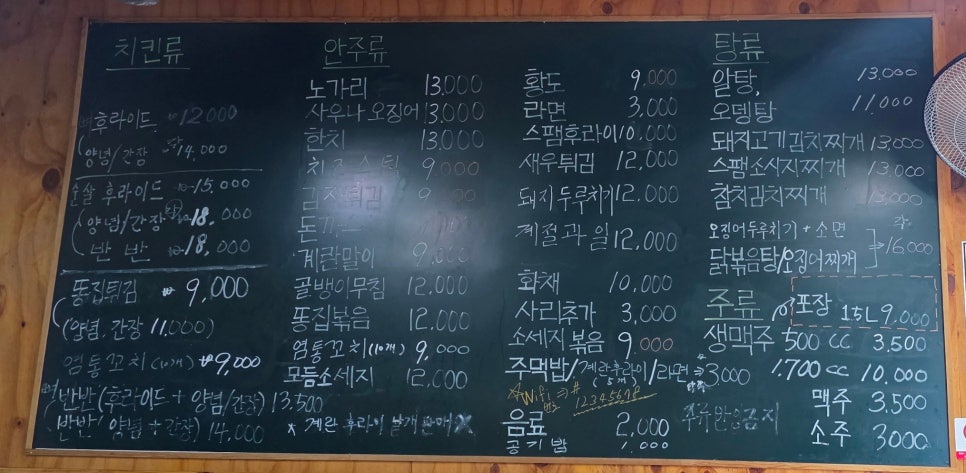 치킨류
후라이드 12,000
(양념/간장 14,000
순살 후라이드 15,000
(양념/간장 18,000
반 반 18,000
똥집튀김 9,000
(양념, 간장 11,000)
염통꼬치(10개) 9,000
뼈 반반(후라이드+양념/간장) 13,500
반반(양념+간장) 14,000
안주류
노가리 13,000
사우나 오징어 13,000
한치 13,000
치즈스틱 9,000
감자튀김 9,000
돈까스
계란말이 9,000
골뱅이무침 12,000
똥집볶음 12,000
염통꼬치(10개) 9,000
모듬소세지 12,000
* 계란 후라이 낱개 판매 X
황도 9,000
라면 3,000
스팸후라이 10,000
새우튀김 12,000
돼지두루치기 12,000
계절과일 12,000
화채 10,000
사리추가 3,000
소세지 볶음 9,000
주먹밥/계란후라이/라면 3,000
(5개)
* Wifi ⇒ #
12345678
음료 2,000
공기밥 1,000
탕류
알탕, 13,000
오뎅탕 11,000
돼지고기김치찌개 13,000
스팸소시지찌개 13,000
참치김치찌개 13,000
오징어두루치기 + 소면
닭볶음탕/오징어찌개
각.
16,000
주류
포장 1.5L 9,000
생맥주 500 cc 3,500
1,700 cc 10,000
맥주 3,500
소주 3000